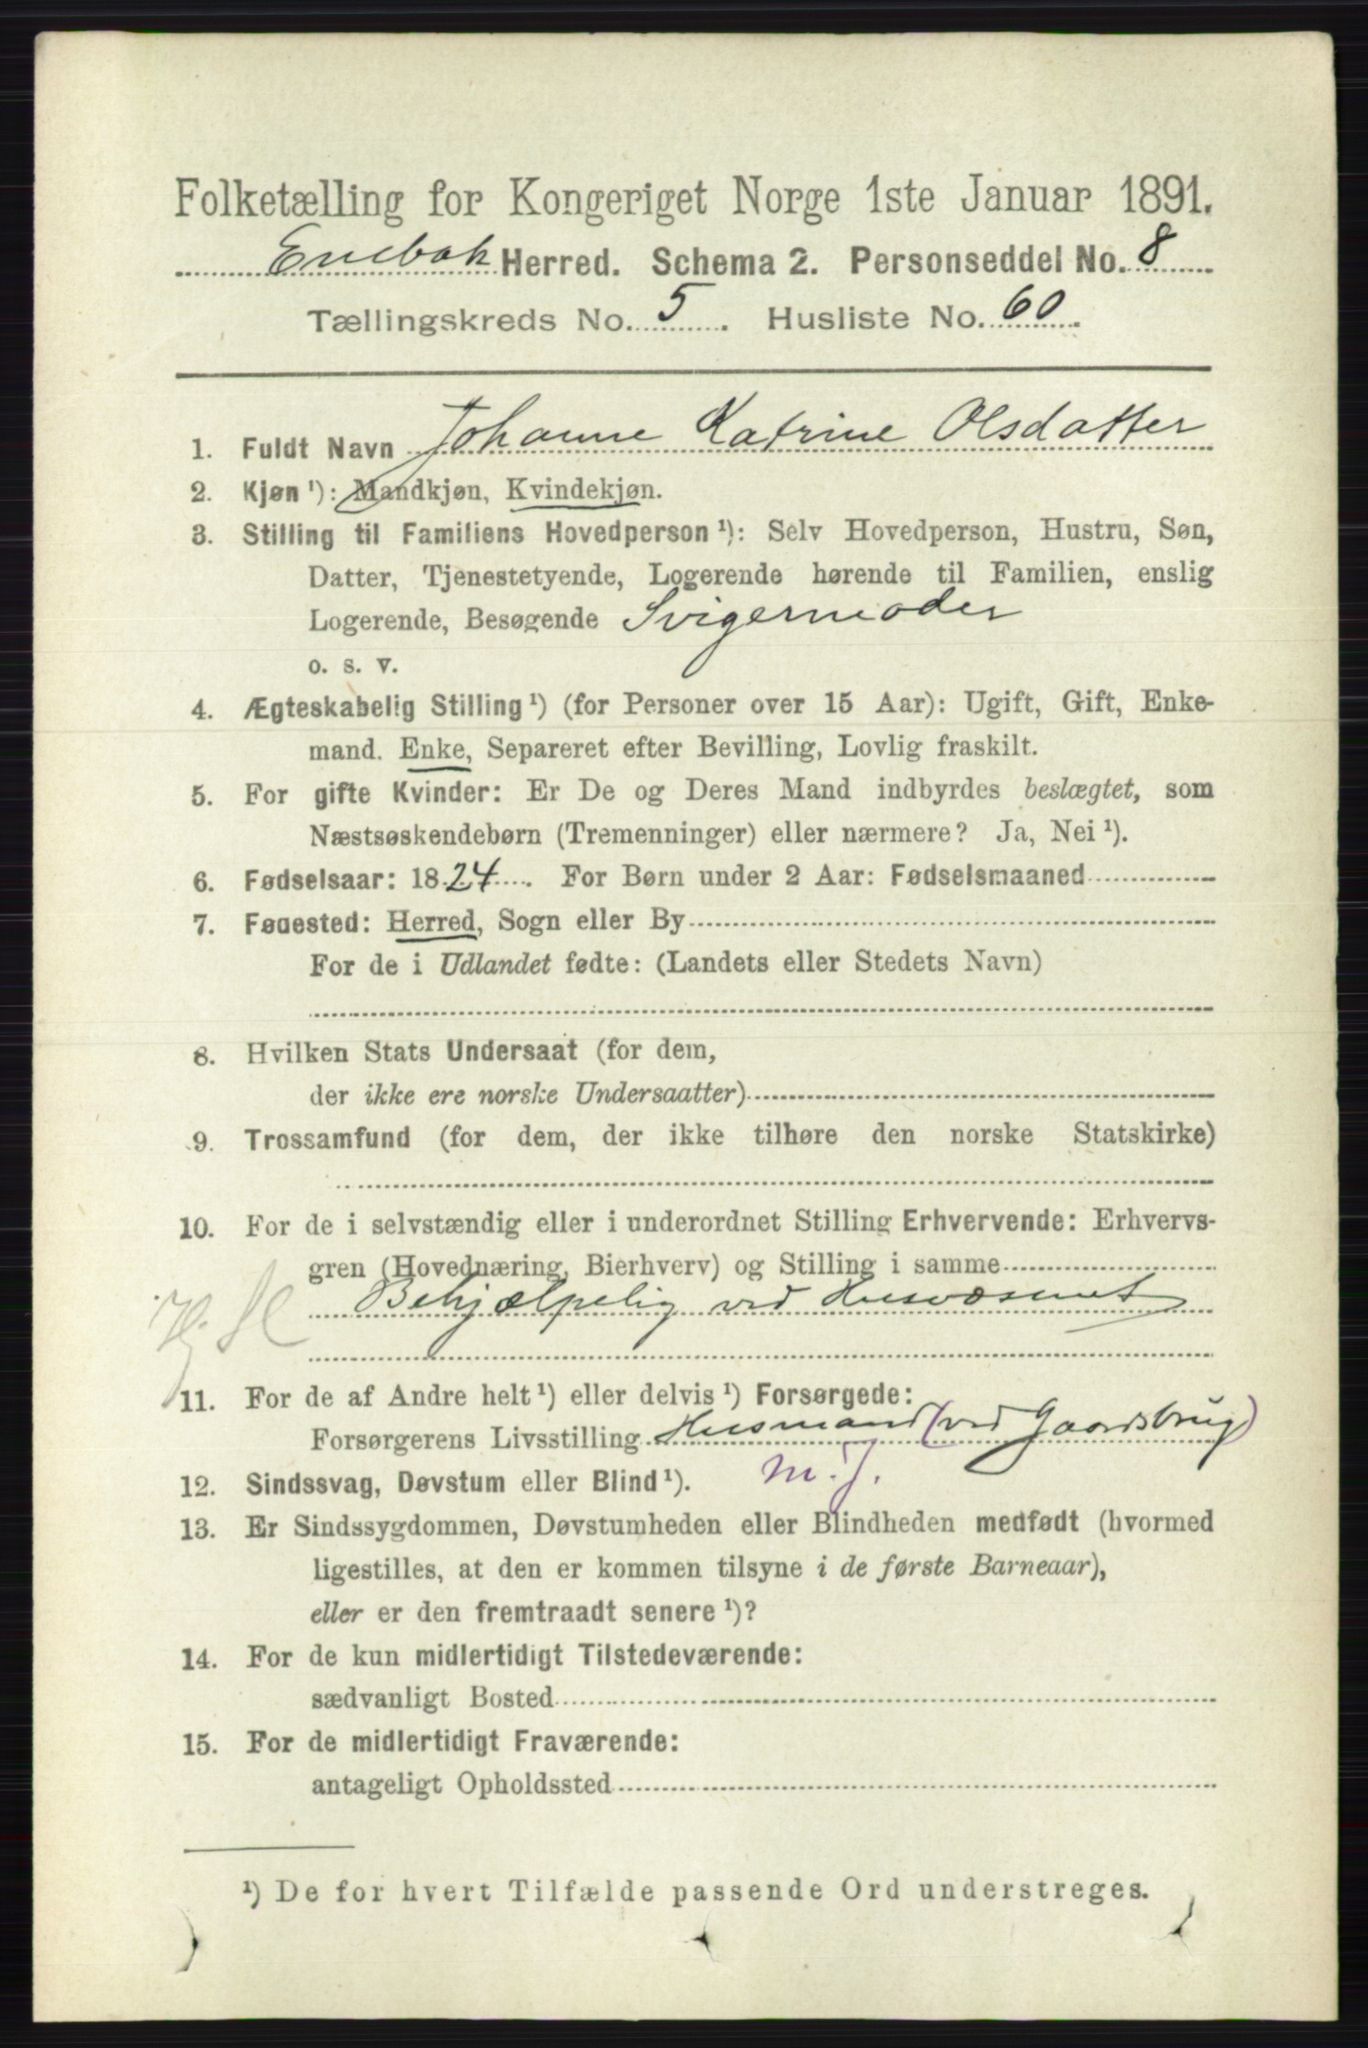 Folketælling for Kongeriget Norge 1ste Januar 1891.
Enebak Herred. Schema 2. Personseddel No. 8
Tællingskreds No. 5. Husliste No. 60.
1. Fuldt Navn Johanne Katrine Olsdatter
2. Kjøn ¹): Mandkjøn, Kvindekjøn.
3. Stilling til Familiens Hovedperson ¹): Selv Hovedperson, Hustru, Søn,
Datter, Tjenestetyende, Logerende hørende til Familien, enslig
Logerende, Besøgende Svigermoder
o. s. v.
4. Ægteskabelig Stilling ¹) (for Personer over 15 Aar): Ugift, Gift, Enke-
mand. Enke, Separeret efter Bevilling, Lovlig fraskilt.
5. For gifte Kvinder: Er De og Deres Mand indbyrdes beslægtet, som
Næstsøskendebørn (Tremenninger) eller nærmere? Ja, Nei ¹).
6. Fødselsaar: 1824. For Børn under 2 Aar: Fødselsmaaned
7. Fødested: Herred, Sogn eller By
For de i Udlandet fødte: (Landets eller Stedets Navn)
8. Hvilken Stats Undersaat (for dem,
der ikke ere norske Undersaatter)
9. Trossamfund (for dem, der ikke tilhøre den norske Statskirke)
10. For de i selvstændig eller i underordnet Stilling Erhvervende: Erhvervs-
gren (Hovednæring, Bierhverv) og Stilling i samme
Behjælpelig ved Husvæsenet
11. For de af Andre helt ¹) eller delvis ¹) Forsørgede:
Forsørgerens Livsstilling Husmand (ved Gaardsbrug)
m. J.
12. Sindssvag, Døvstum eller Blind ¹).
13. Er Sindssygdommen, Døvstumheden eller Blindheden medfødt (hvormed
ligestilles, at den er kommen tilsyne i de første Barneaar),
eller er den fremtraadt senere ¹)?
14. For de kun midlertidigt Tilstedeværende:
sædvanligt Bosted
15. For de midlertidigt Fraværende:
antageligt Opholdssted
¹) De for hvert Tilfælde passende Ord understreges.